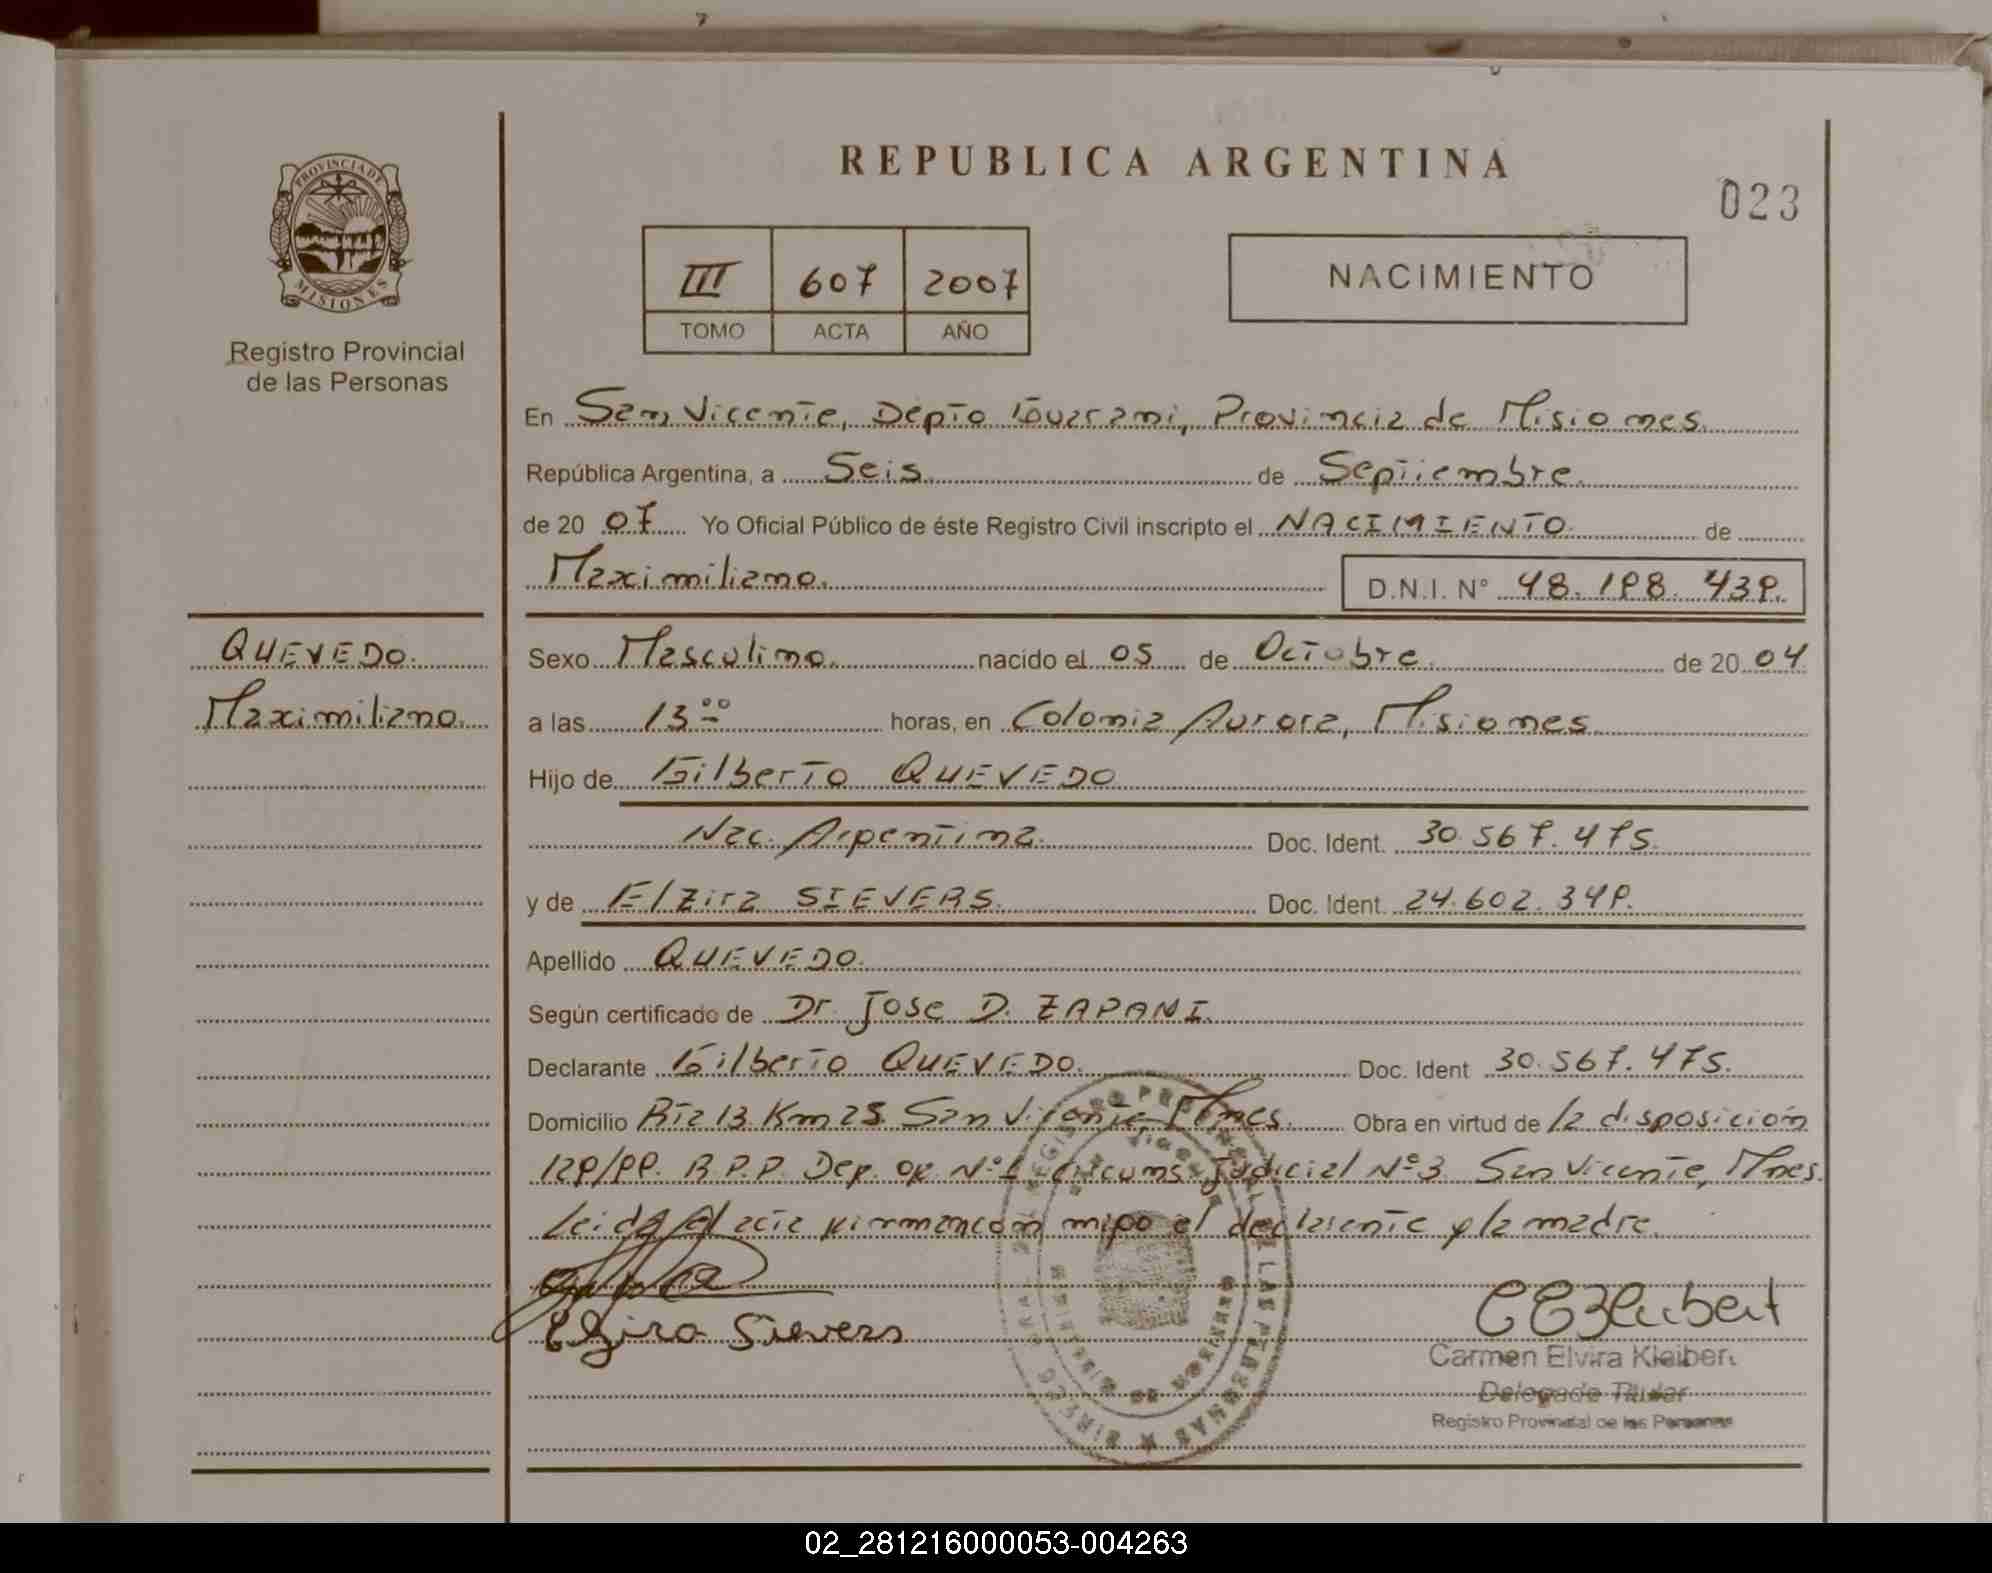 REPUBLICA ARGENTINA
023
PROVINCIA DE
MISIONES
Registro Provincial
de las Personas
III 607 2007
TOMO ACTA AÑO
NACIMIENTO
En San Vicente, Depto Guarani, Provincia de Misiones.
República Argentina, a Seis. de Septiembre.
de 20 07 Yo Oficial Público de éste Registro Civil inscripto el NACIMIENTO. de
Maximiliano. D.N.I. N° 48.198.439.
QUEVEDO.
Maximiliano.
Sexo Masculino. nacido el 05 de Octubre. de 20 04
a las 13 oo horas, en Colonia Aurora, Misiones.
Hijo de Gilberto QUEVEDO
Nac. Argentina. Doc. Ident. 30.567.475.
y de Elzira SIEVERS. Doc. Ident. 24.602.349.
Apellido QUEVEDO.
Según certificado de Dr. Jose D. ZAPANI.
Declarante Gilberto QUEVEDO. Doc. Ident 30.567.475.
Domicilio Rta 13 Km 25 San Vicente, Mnes. Obra en virtud de la disposición
129/99. R.P.P. Dep. N°1 circuns. judicial N°3 San Vicente, Mnes.
Leida el acta el declarante y la madre.
Elzira Sievers
Carmen Elvira Kleibert
Delegado Titular
Registro Provincial de las Personas
02_281216000053-004263